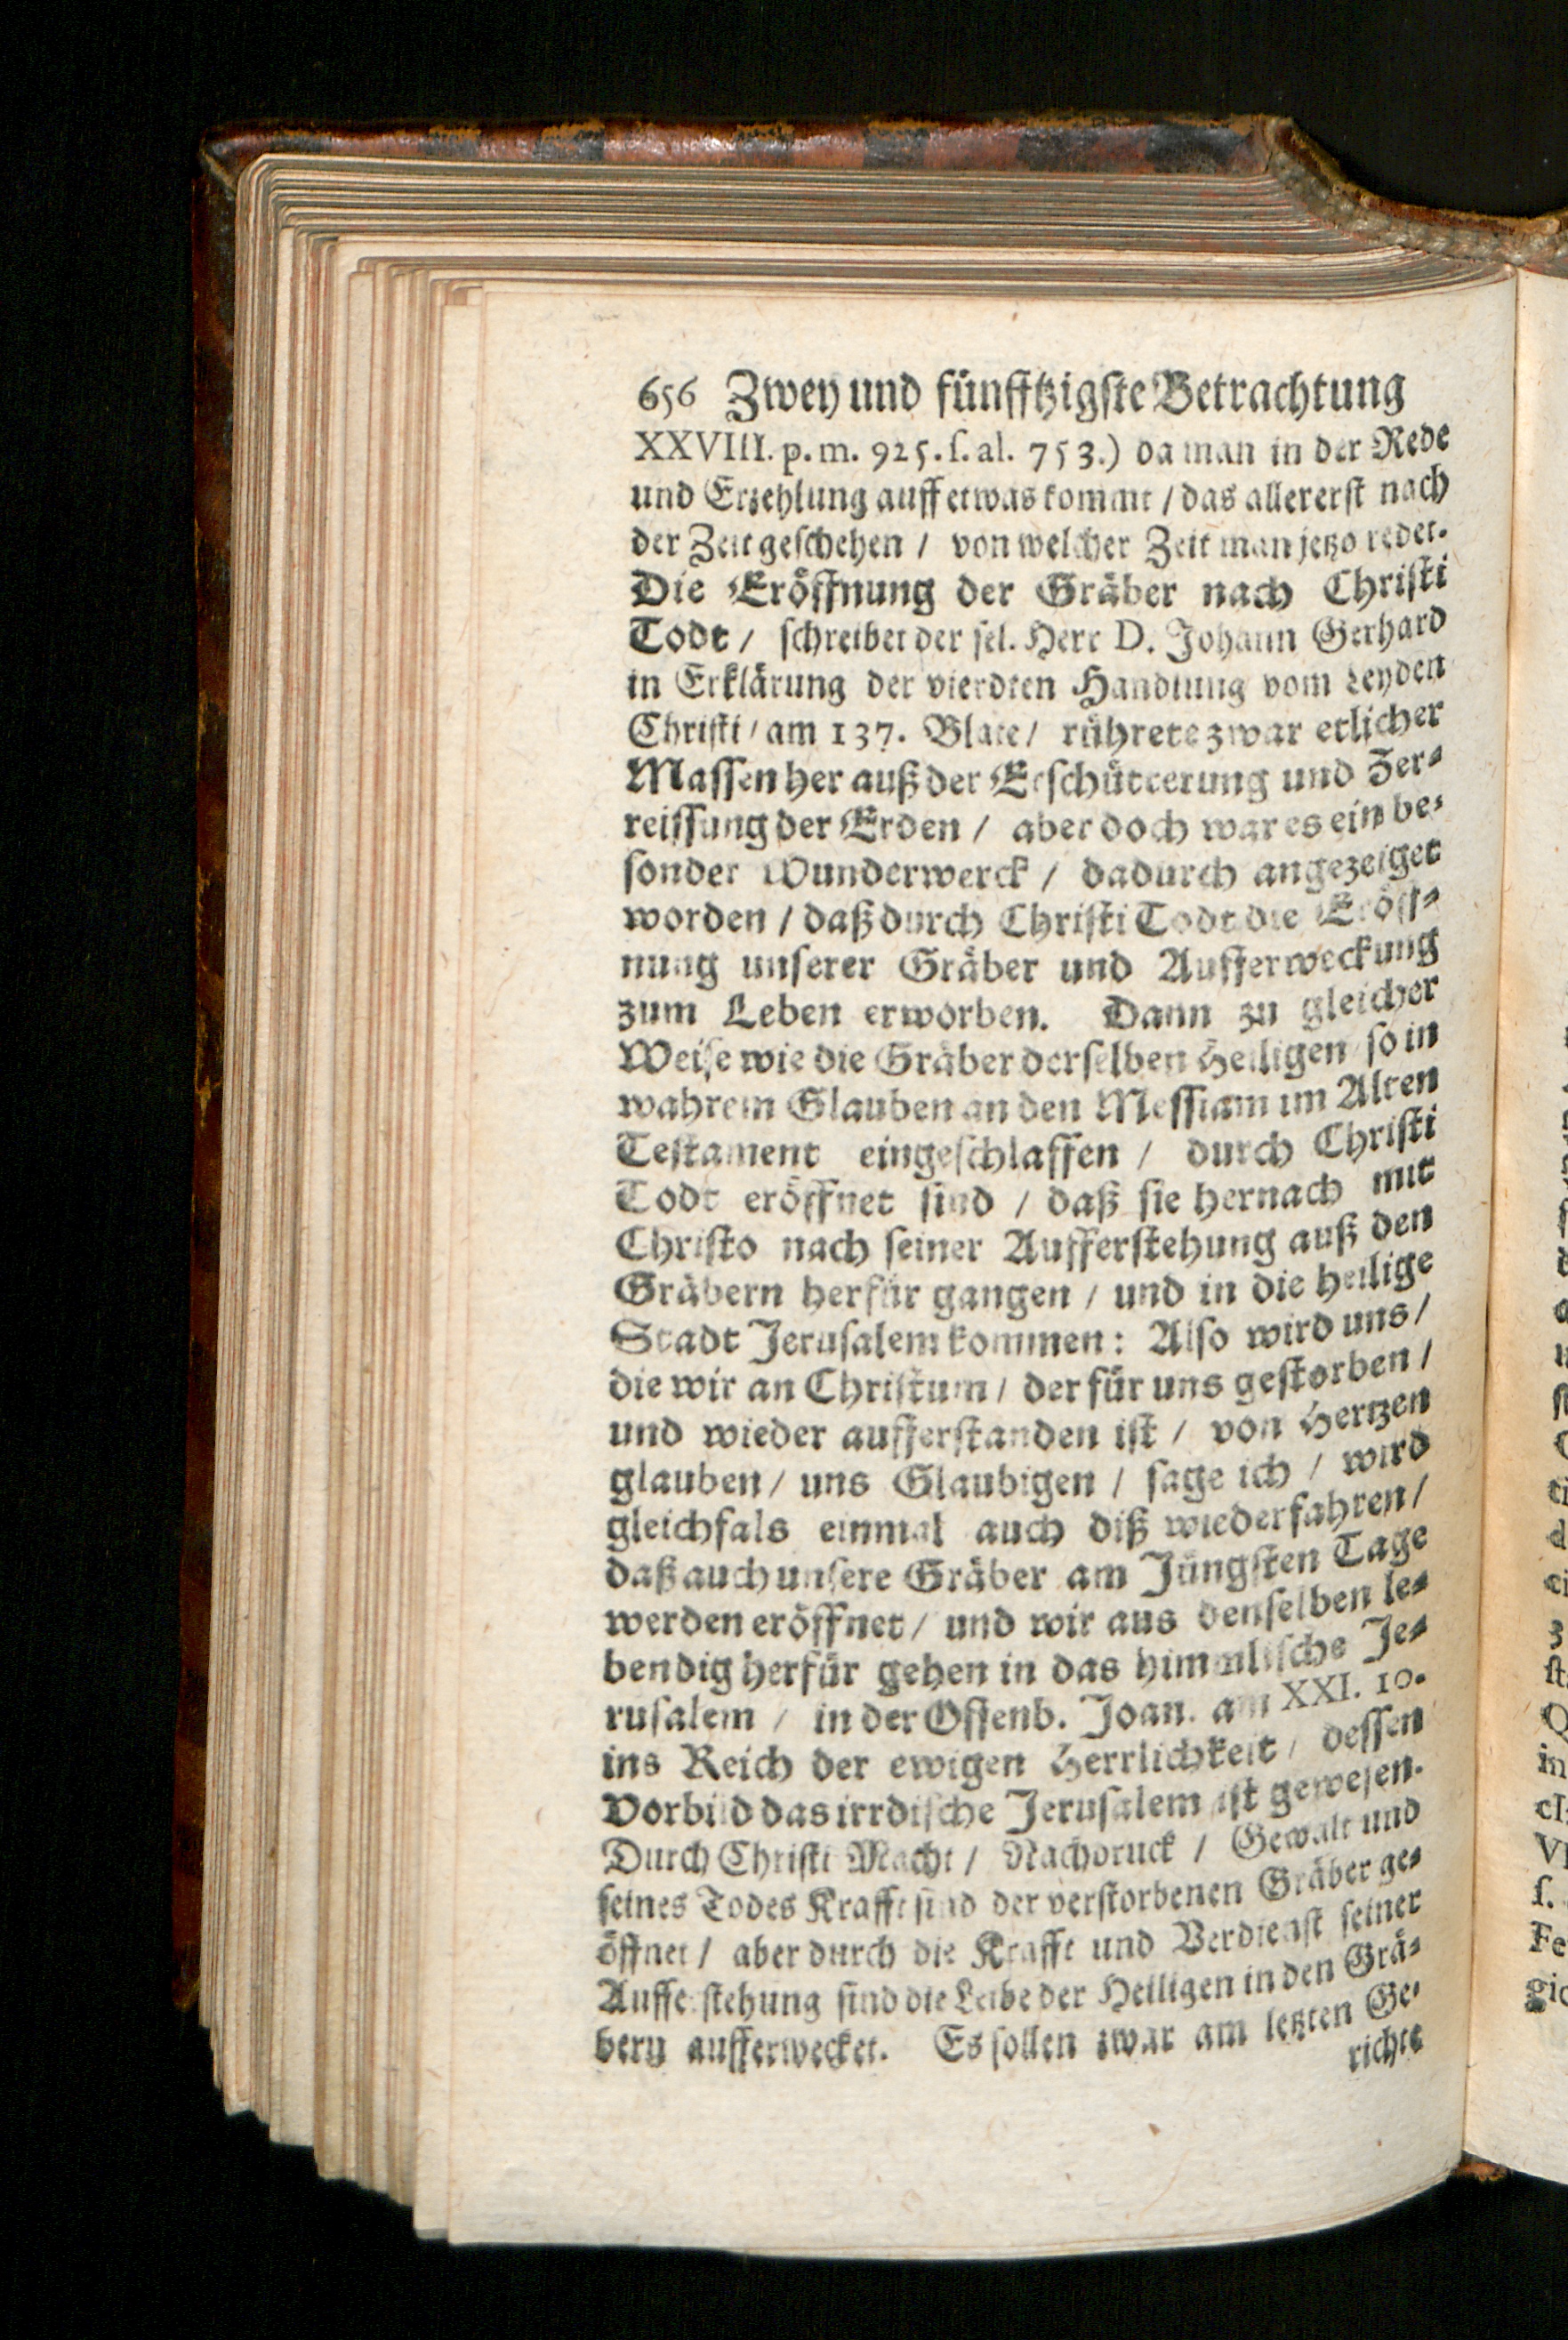 656 Zwey und fünfftzigste Betrachtung
XXVIII. p. m. 925. s. al. 753.) da man in der Rede
und Erzehlung auff etwas kommt / das allererst nach
der Zeit geschehen / von welcher Zeit man jetzo redet.
Die Eröffnung der Gräber nach Christi
Todt / schreibet der sel. Herr D. Johann Gerhard
in Erklärung der vierdten Handlung vom Leyden
Christi / am 137. Blate / rührete zwar etlicher
Massen her auß der Erschütterung und Zer-
reissung der Erden / aber doch war es ein be-
sonder Wunderwerck / dadurch angezeiget
worden / daß durch Christi Todt die Eröff-
nung unserer Gräber und Aufferweckung
zum Leben erworben. Dann zu gleicher
Weise wie die Gräber derselben Heiligen so in
wahrem Glauben an den Messiam im Alten
Testament eingeschlaffen / durch Christi
Todt eröffnet sind / daß sie hernach mit
Christo nach seiner Aufferstehung auß den
Gräbern herfür gangen / und in die heilige
Stadt Jerusalem kommen: Also wird uns /
die wir an Christum / der für uns gestorben /
und wieder aufferstanden ist / von Hertzen
glauben / uns Glaubigen / sage ich / wird
gleichfals einmal auch diß wiederfahren /
daß auch unsere Gräber am Jüngsten Tage
werden eröffnet / und wir aus denselben le-
bendig herfür gehen in das himmlische Je-
rusalem / in der Offenb. Joan. am XXI. 10.
ins Reich der ewigen Herrlichkeit / dessen
Vorbild das irrdische Jerusalem ist gewesen.
Durch Christi Macht / Nachdruck / Gewalt und
seines Todes Krafft sind der verstorbenen Gräber ge-
öffnet / aber durch die Krafft und Verdienst seiner
Aufferstehung sind die Leibe der Heiligen in den Grä-
bern aufferwecket. Es sollen zwar am letzten Ge-
richte